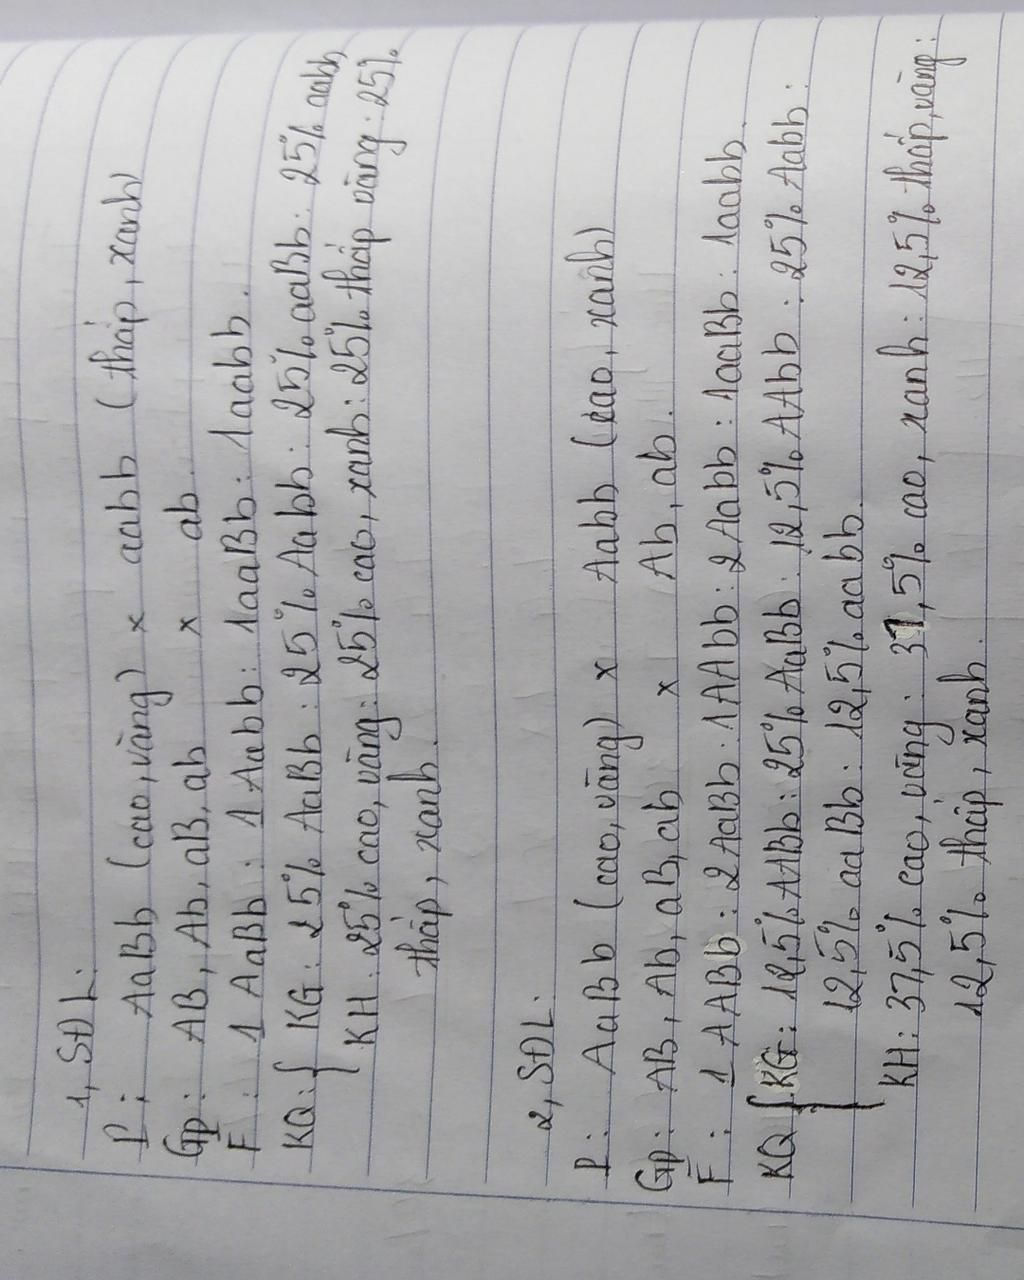 1, SĐL:
P: AaBb (cao, vàng) x aabb (thấp, xanh)
Gp: AB, Ab, aB, ab x ab.
F: 1 AaBb : 1 Aabb : 1aaBb : 1aabb.
KQ: { KG: 25% AaBb : 25% Aabb : 25% aaBb : 25% aabb
KH: 25% cao, vàng : 25% cao, xanh : 25% thấp vàng : 25%
thấp, xanh.
2, SĐL:
P: AaBb (cao, vàng) x Aabb (cao, xanh)
Gp: AB, Ab, aB, ab x Ab, ab.
F: 1 AABb : 2AaBb : 1AAbb : 2Aabb : 1aaBb : 1aabb.
KQ { KG: 12,5% AABb : 25% AaBb : 12,5% AAbb : 25% Aabb :
12,5% aaBb : 12,5% aabb.
KH: 37,5% cao, vàng : 37,5% cao, xanh : 12,5% thấp, vàng :
12,5% thấp, xanh.